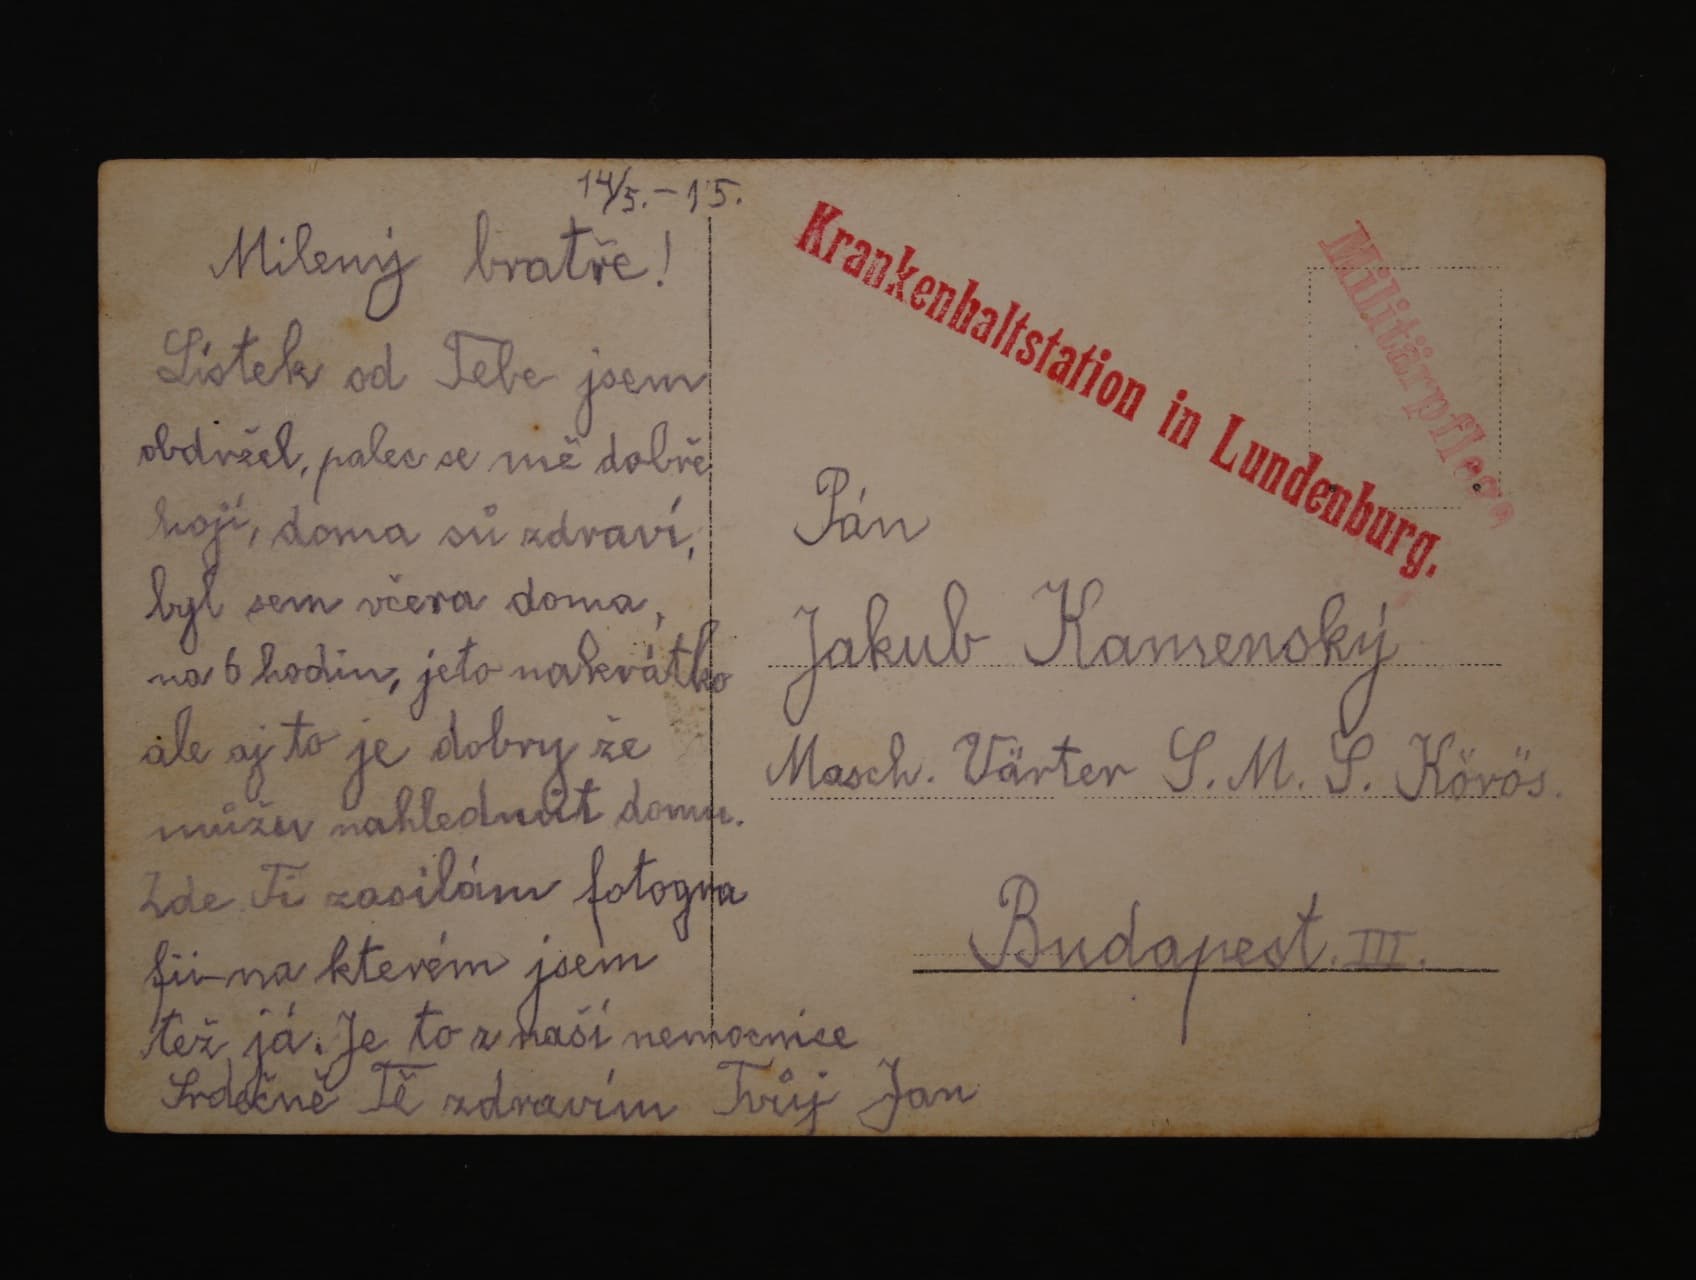 14/5. – 15.
Milený bratře!
Lístek od Tebe jsem
obdržel, palec se mě dobře
hojí, doma sů zdraví,
byl sem včera doma,
na 6 hodin, jeto nakrátko
ale aj to je dobry že
můžu nahlednůt domu.
Zde Ti zasílám fotogra
fii na kterém jsem
též já. Je to z naší nemocnice
Srdečně Tě zdravím Tvůj Jan
Krankenhaltstation in Lundenburg.
Militärpflege
Pán
Jakub Kamenský
Masch. Värter S. M. S. Körös.
Budapest. III.